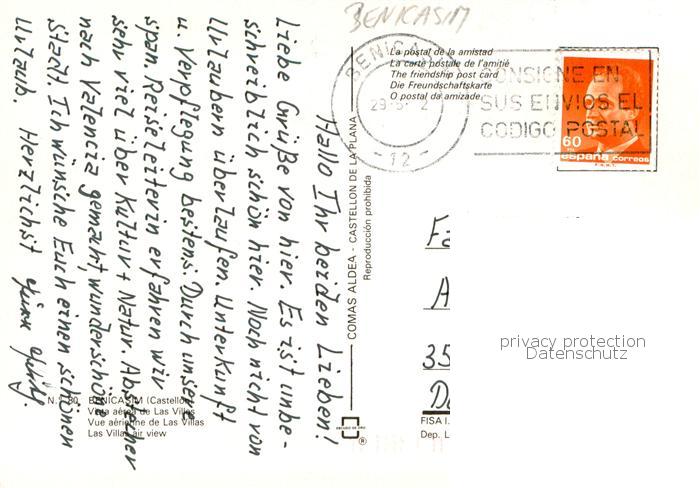 BENICASIM
La postal de la amistad
La carte postale de l'amitié
The friendship post card
Die Freundschaftskarte
O postal da amizade
BENICA
29-5
2
- 12 -
CONSIGNE EN
SUS ENVIOS EL
CODIGO POSTAL
60
PTA
españa correos
Hallo Ihr beiden Lieben!
Liebe Grüße von hier. Es ist unbe-
schreiblich schön hier. Noch nicht von
Urlaubern überlaufen. Unterkunft
u. Verpflegung bestens. Durch unsere
span. Reiseleiterin erfahren wir
sehr viel über Kultur + Natur. Abstecher
nach Valencia gemacht, wunderschöne
Stadt. Ich wünsche Euch einen schönen
Urlaub. Herzlichst
COMAS ALDEA - CASTELLON DE LA PLANA
Reproducción prohibida
Fa
A
35
D
privacy protection
Datenschutz
N.º 80 BENICASIM (Castellón)
Vista aérea de Las Villas
Vue aérienne de Las Villas
Las Villas air view
ESCUDO DE ORO
FISA I.
Dep. L